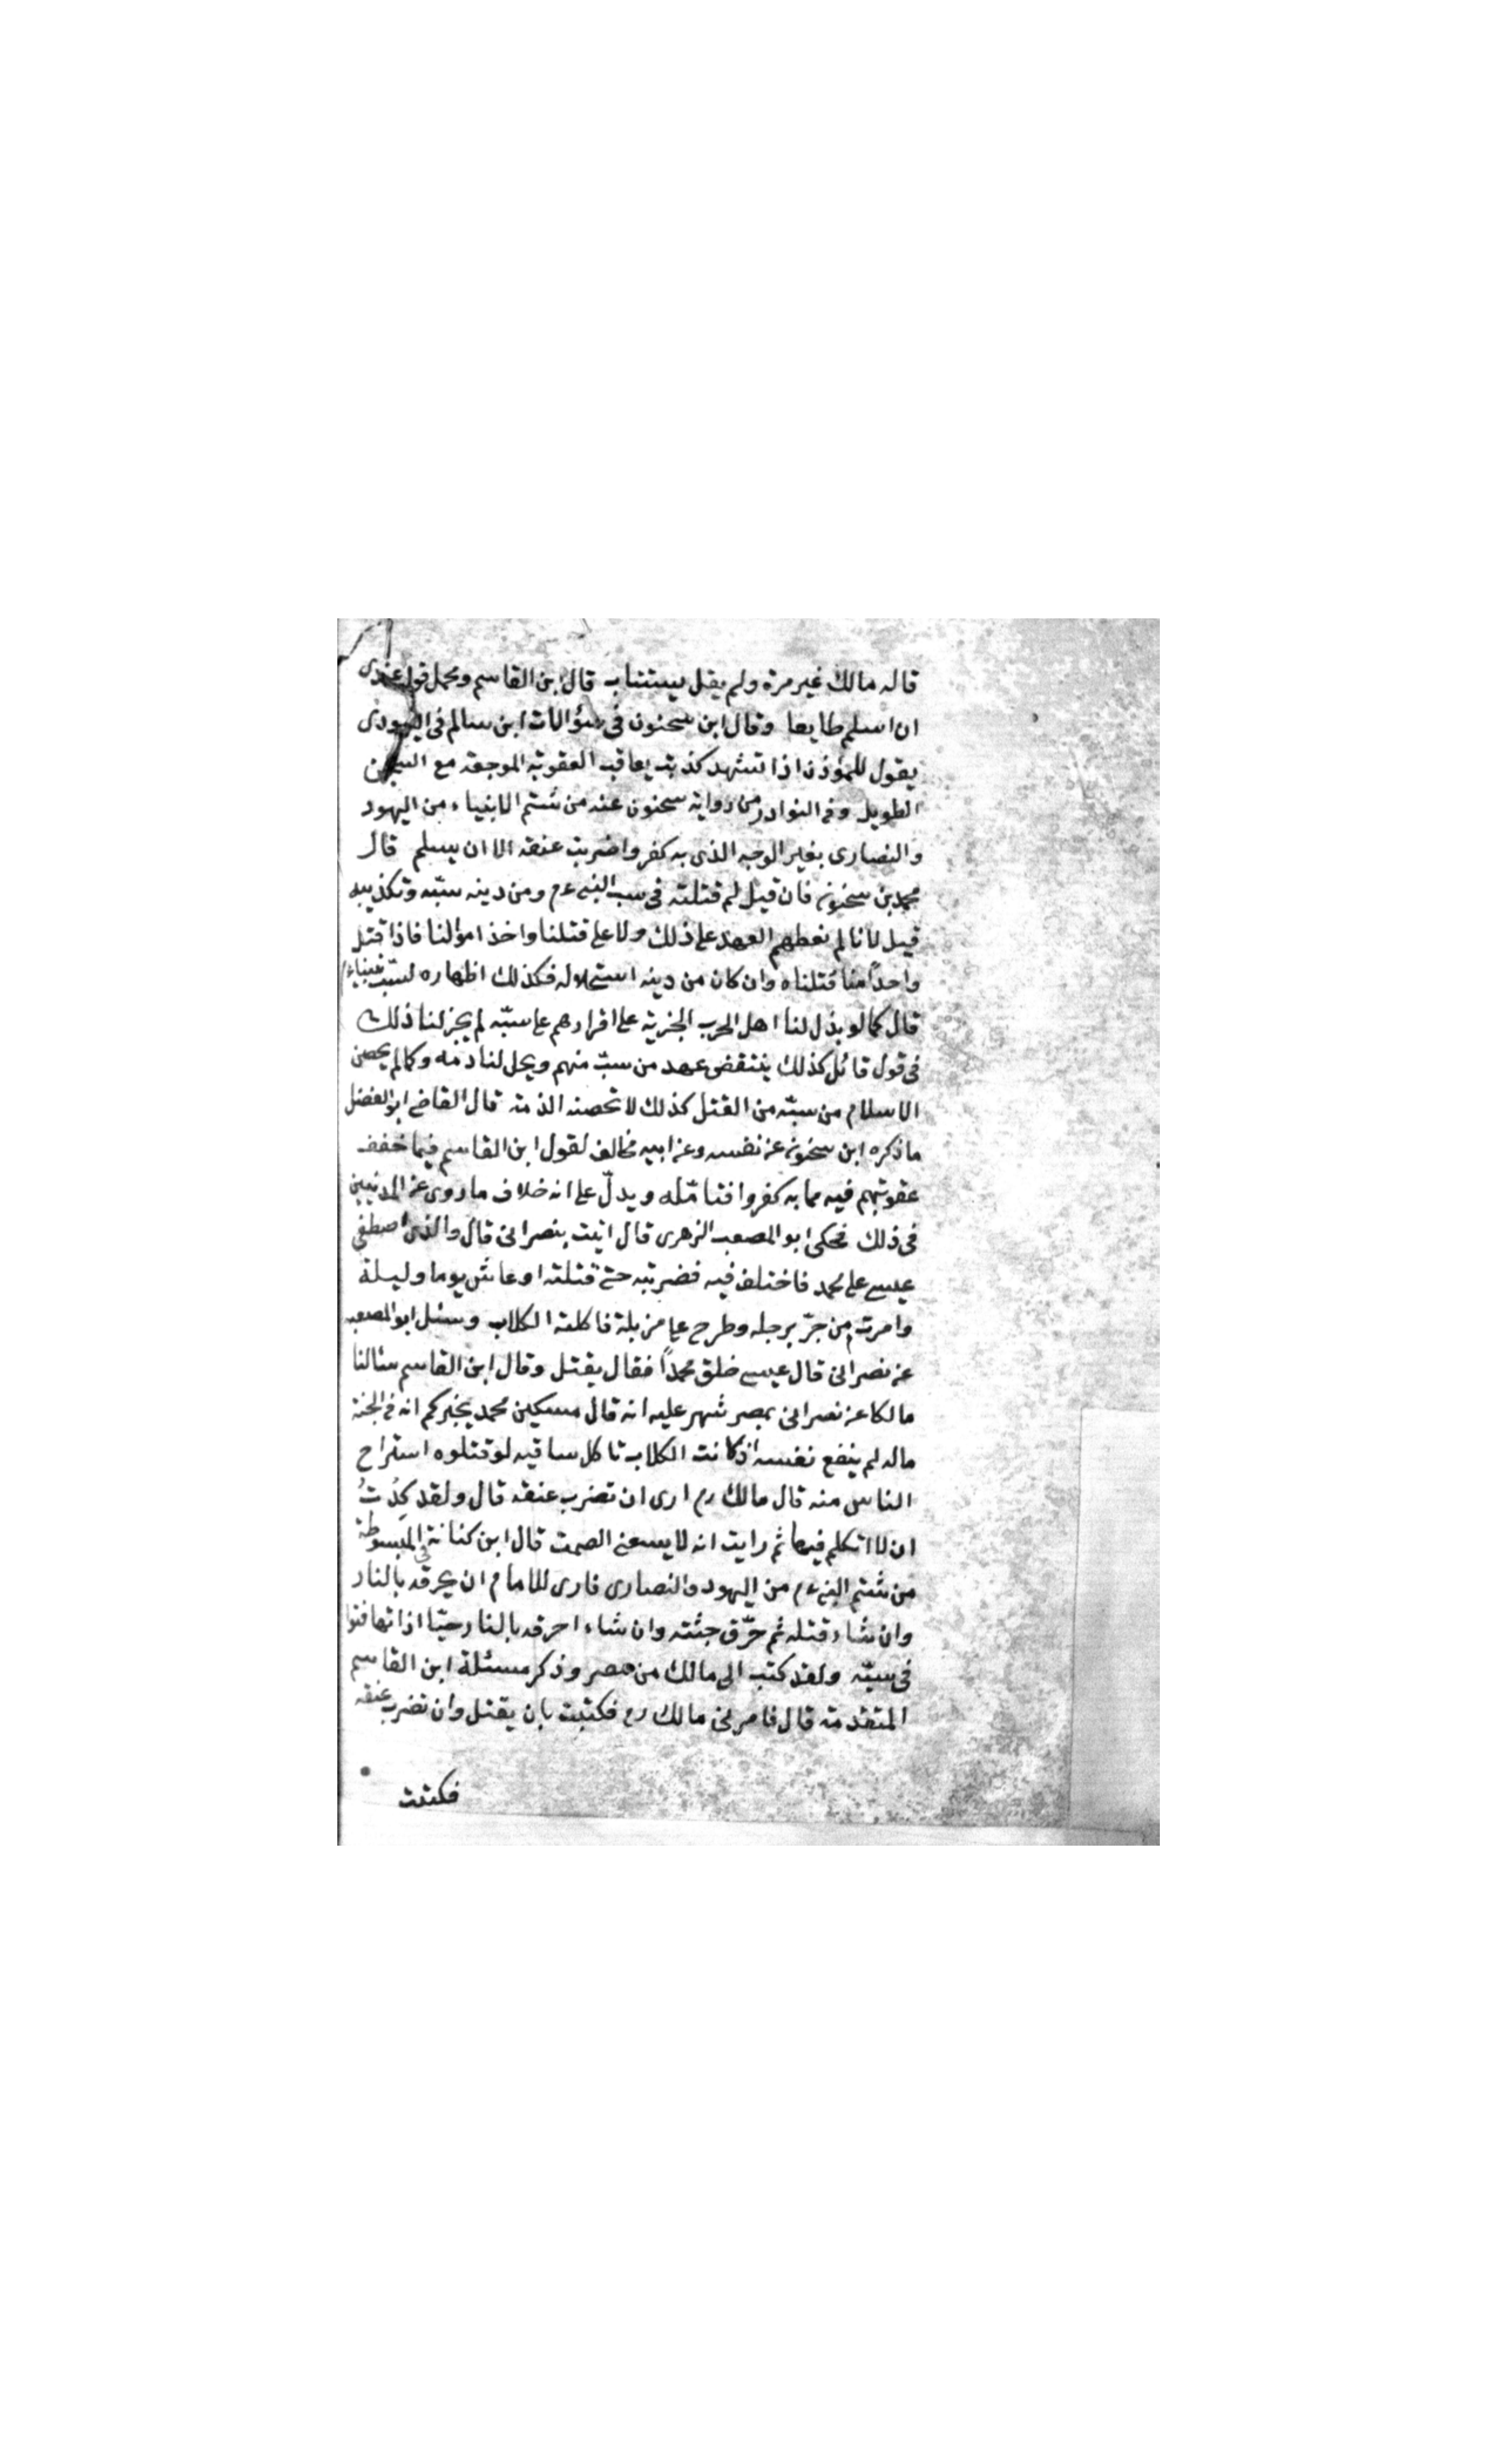 قاله مالك غير مرة ولم يقل يستتاب قال ابن القاسم ومحمل قوله عندى
ان اسلم طايعا وقال ابن سحنون فى سؤالات ابن سالم فى اليهودى
يقول للمؤذن اذا تشهد كذبت يعاقب العقوبة الموجعة مع السجن
الطويل وفى النوادر من رواية سحنون عنه من شتم الانبياء من اليهود
والنصارى بغير الوجه الذى به كفروا ضربت عنقه الا ان يسلم قال
محمد بن سحنون فان قيل لم قتلته فى سب النبى عم ومن دينه سبّه وتكذيبه
قيل لانا لم نعطهم العهد على ذلك ولا على قتلنا واخذ اموالنا فاذا قتل
واحدًا منا قتلناه وان كان من دينه استحلاله فكذلك اظهاره لسبّ نبينا عم
قال كما لو بذل لنا اهل الحرب الجزية على اقرارهم على سبّه لم يجز لنا ذلك
فى قول قائل كذلك ينتقض عهد من سبّ منهم ويحل لنا دمه وكما لم يحصن
الاسلام من سبّه من القتل كذلك لا تحصنه الذمة قال القاضى ابو الفضل
ما ذكره ابن سحنون عن نفسه وعن ابيه مخالف لقول ابن القاسم فيما خفف
عقوبتهم فيه مما به كفروا فتامّله ويدلّ على انه خلاف ما روى عن المدنيين
فى ذلك فحكى ابو المصعب الزهرى قال اتيت بنصرانى قال والذى اصطفى
عيسى على محمد فاختلف فيه فضربته حتى قتلته او عاش يوما وليلة
وامرت من جرّ برجله وطرح على مزبلة فاكلته الكلاب وسئل ابو المصعب
عن نصرانى قال عيسى خلق محمدًا فقال يقتل وقال ابن القاسم سئالنا
مالكا عن نصرانى بمصر شهر عليه انه قال مسكين محمد يخبركم انه فى الجنة
ماله لم ينفع نفسه اذ كانت الكلاب تاكل ساقيه لو قتلوه استراح
الناس منه قال مالك رح ارى ان تضرب عنقه قال ولقد كِدْتُ
ان لا اتكلم فيها ثم رايت انه لا يسعنى الصمت قال ابن كنانة فى المبسوطة
من شتم النبى عم من اليهود والنصارى فارى للامام ان يحرقه بالنار
وان شاء قتله ثم حرّق جثته وان شاء احرقه بالنار حيّا اذا تهافتوا
فى سبّه ولقد كتب الى مالك من مصر وذكر مسئلة ابن القاسم
المتقدمة قال فامرنى مالك رح فكتبت بان يقتل وان تضرب عنقه
فكتبت